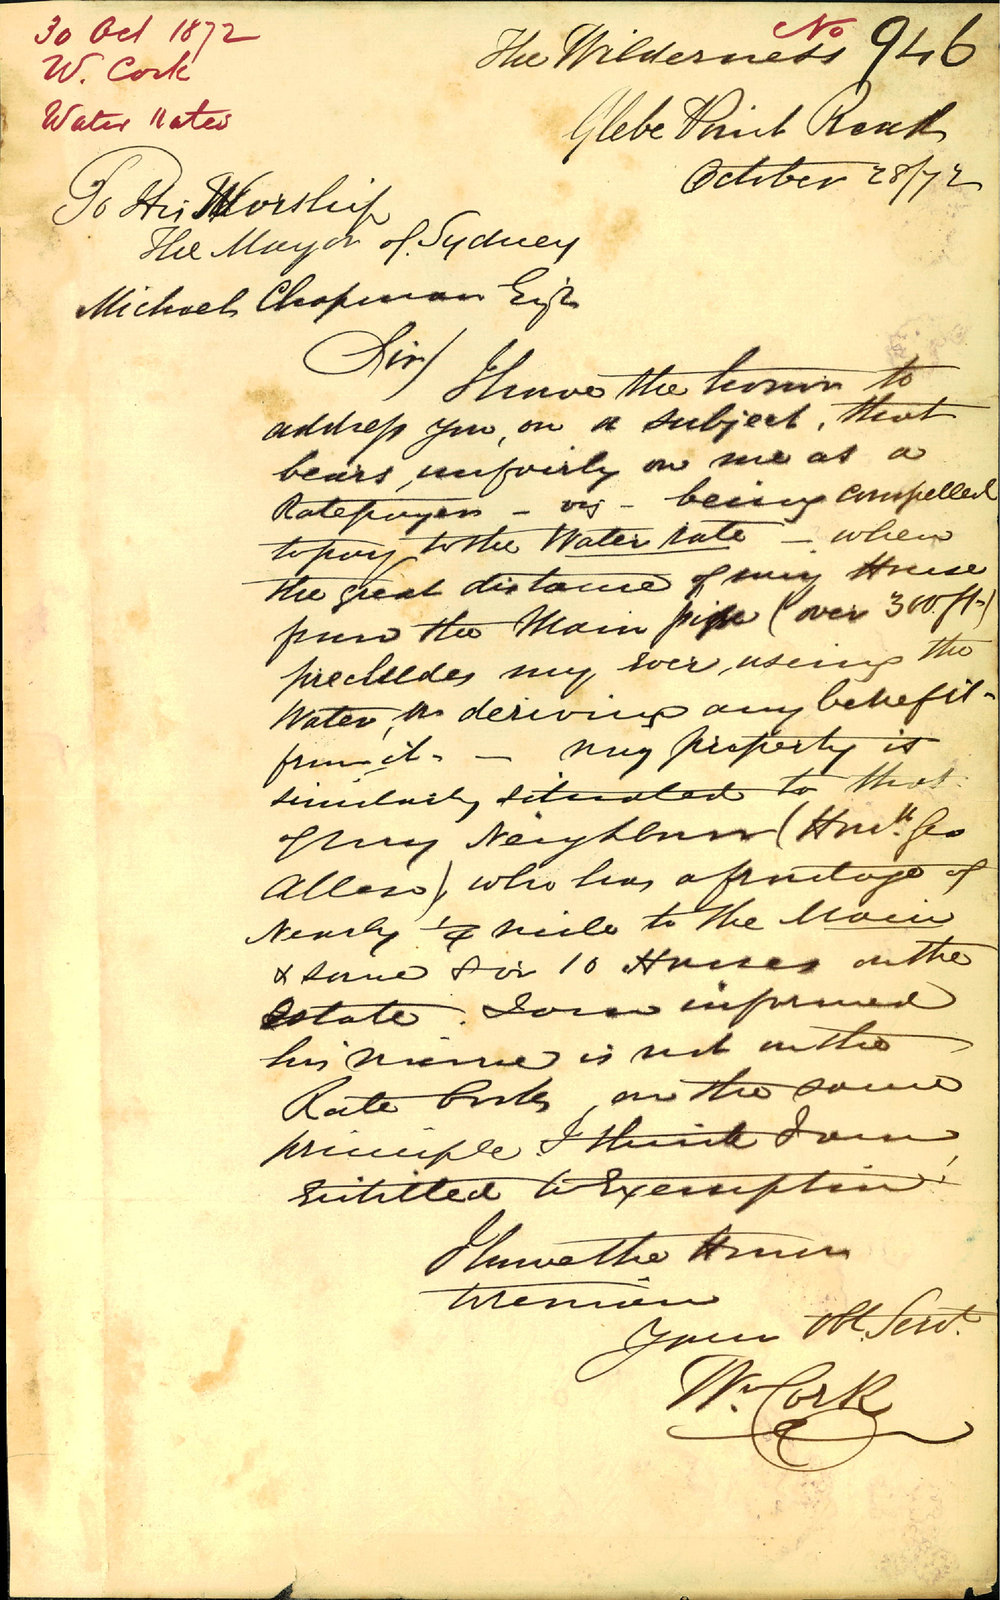 30 Oct 1872
W. Cork
Water Rates
No 946
The Wilderness
Glebe Point Road
October 28/72
To His Worship
The Mayor of Sydney
Michael Chapman Esqr
Sir/
I have the honor to
address you, on a subject, that
bears, unfairly on me as a
Ratepayer - viz - being compelled
to pay to the Water rate - when
the great distance of my House
from the Main pipe (over 300 ft)
precludes my ever, using the
Water, or deriving any benefit
from it. - my property is
similarly situated to that
of my Neighbour (Honble Geo
Allen), who has a frontage of
Nearly 1/4 mile to the Main
& some 8 or 10 Houses on the
Estate. I am informed
his name is not on the
Rate books, on the same
principle I think I am
entitled to Exemption!
I have the Honor
to remain
Your Obt. Servt.
Wm. Cork